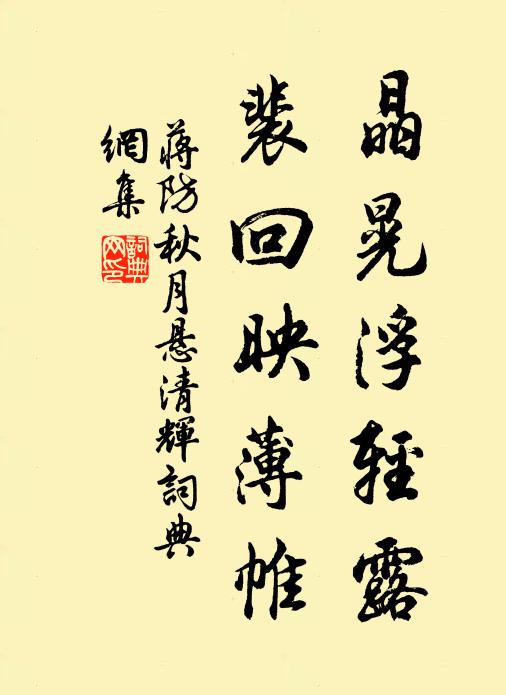 晶晃浮輕露
裴回映薄帷
蔣防秋月悬清輝詞典
網集
詞典
网印